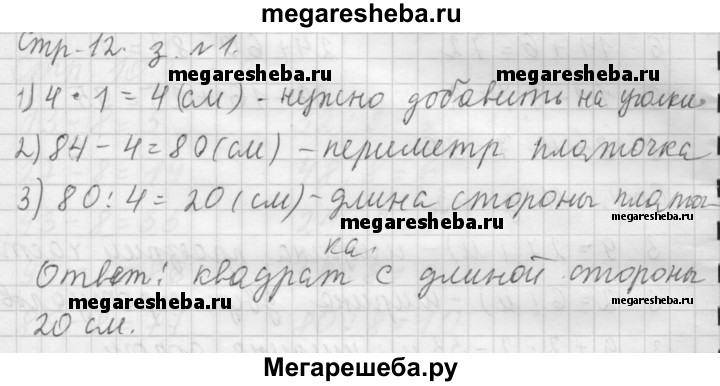 megaresheba.ru
Стр-12. з. №1.
megaresheba.ru megaresheba.ru
1) 4 · 1 = 4 (см) - нужно добавить на уголки.
2) 84 - 4 = 80 (см) - периметр платочка
3) 80 : 4 = 20 (см) - длина стороны платоч-
megaresheba.ru megaresheba.ru
ка.
Ответ: квадрат с длиной стороны
megaresheba.ru megaresheba.ru
20 см.
Мегарешеба.ру